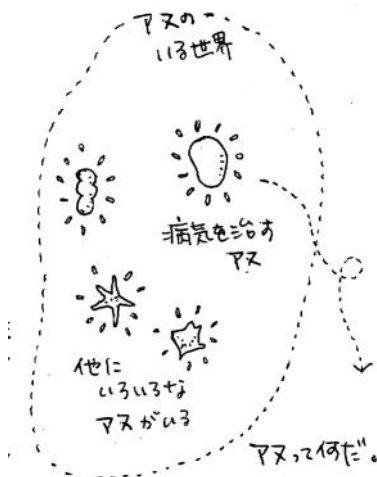 アヌの
いる世界
病気を治す
アヌ
他に
いろいろな
アヌがいる
アヌって何だ。